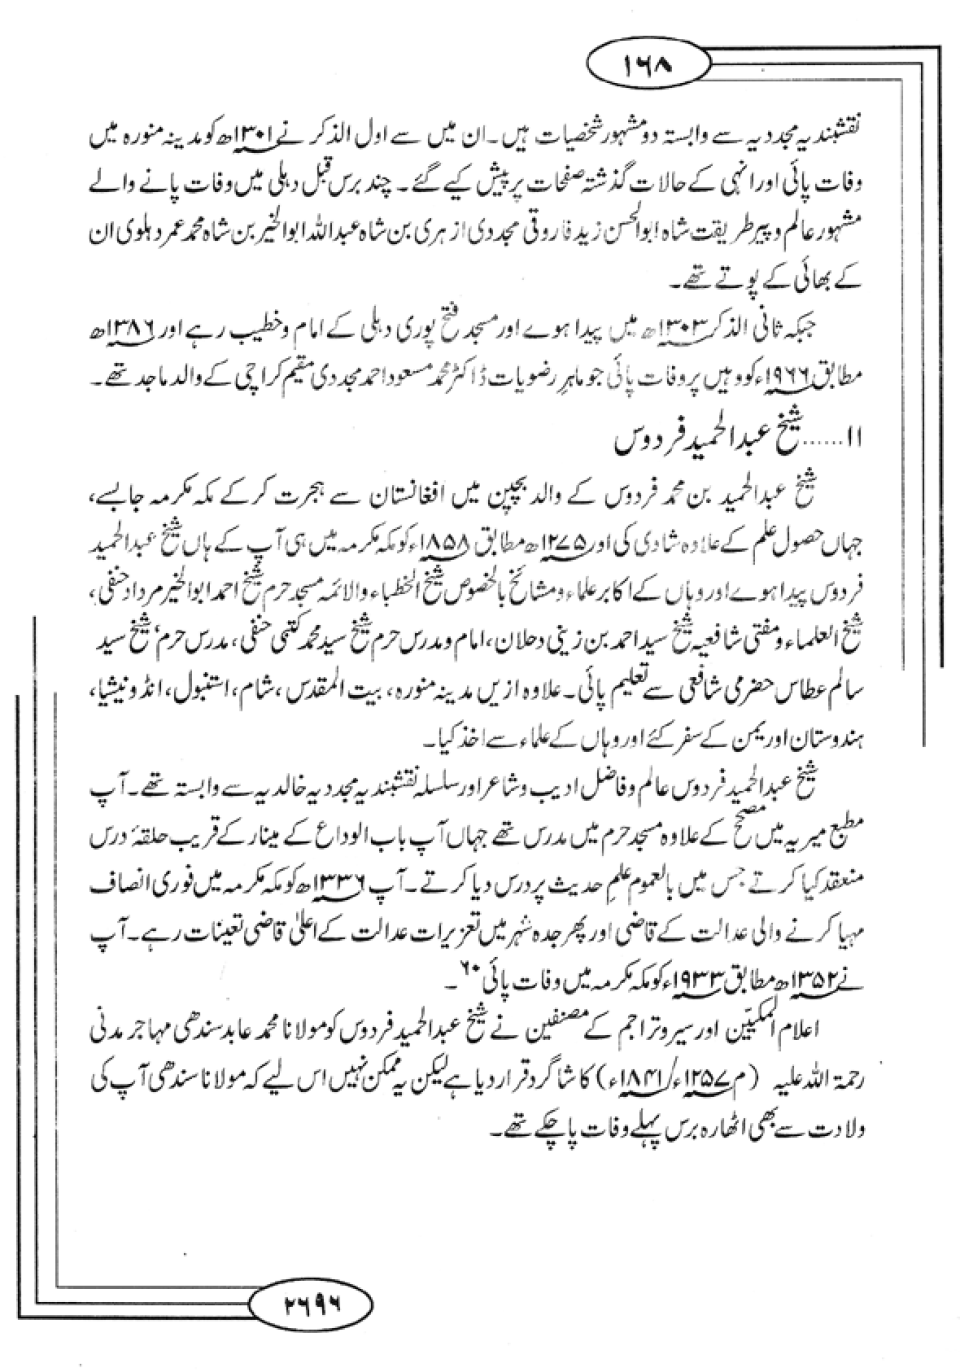 ۱۶۸
نقشبندیہ مجددیہ سے وابستہ دو مشہور شخصیات ہیں۔ ان میں سے اول الذکر نے ۱۳۰۱ھ کو مدینہ منورہ میں
وفات پائی اور انہی کے حالات گذشتہ صفحات پر پیش کیے گئے۔ چند برس قبل دہلی میں وفات پانے والے
مشہور عالم و پیر طریقت شاہ ابوالحسن زید فاروقی مجددی ازہری بن شاہ عبداللہ ابوالخیر بن شاہ محمد عمر دہلوی ان
کے بھائی کے پوتے تھے۔
جبکہ ثانی الذکر ۱۳۰۳ھ میں پیدا ہوے اور مسجد فتح پوری دہلی کے امام و خطیب رہے اور ۱۳۸۶ھ
مطابق ۱۹۶۶ء کو وہیں پر وفات پائی جو ماہرِ رضویات ڈاکٹر محمد مسعود احمد مجددی مقیم کراچی کے والد ماجد تھے۔
۱۱......شیخ عبدالحمید فردوس
شیخ عبدالحمید بن محمد فردوس کے والد بچپن میں افغانستان سے ہجرت کرکے مکہ مکرمہ جا بسے،
جہاں حصول علم کے علاوہ شادی کی اور ۱۲۷۵ھ مطابق ۱۸۵۸ء کو مکہ مکرمہ میں ہی آپ کے ہاں شیخ عبدالحمید
فردوس پیدا ہوے اور وہاں کے اکابر علماء و مشائخ بالخصوص شیخ الخطباء والائمہ مسجد حرم شیخ احمد ابوالخیر مرداد حنفی،
شیخ العلماء و مفتی شافعیہ شیخ سید احمد بن زینی دحلان، امام و مدرس حرم شیخ سید محمد کتبی حنفی، مدرس حرم، شیخ سید
سالم عطاس حضرمی شافعی سے تعلیم پائی۔ علاوہ ازیں مدینہ منورہ، بیت المقدس، شام، استنبول، انڈونیشیا،
ہندوستان اور یمن کے سفر کئے اور وہاں کے علماء سے اخذ کیا۔
شیخ عبدالحمید فردوس عالم و فاضل ادیب و شاعر اور سلسلہ نقشبندیہ مجددیہ خالدیہ سے وابستہ تھے۔ آپ
مطبع میریہ میں مصحح کے علاوہ مسجد حرم میں مدرس تھے جہاں آپ باب الوداع کے مینار کے قریب حلقۂ درس
منعقد کیا کرتے جس میں بالعموم علمِ حدیث پر درس دیا کرتے۔ آپ ۱۳۳۶ھ کو مکہ مکرمہ میں فوری انصاف
مہیا کرنے والی عدالت کے قاضی اور پھر جدہ شہر میں تعزیرات عدالت کے اعلیٰ قاضی تعینات رہے۔ آپ
نے ۱۳۵۲ھ مطابق ۱۹۳۳ء کو مکہ مکرمہ میں وفات پائی ۶۰۔
اعلام المکیّین اور سیر و تراجم کے مصنفین نے شیخ عبدالحمید فردوس کو مولانا محمد عابد سندھی مہاجر مدنی
رحمۃ اللہ علیہ (م ۱۲۵۷ء/۱۸۴۱ء) کا شاگرد قرار دیا ہے لیکن یہ ممکن نہیں اس لیے کہ مولانا سندھی آپ کی
ولادت سے بھی اٹھارہ برس پہلے وفات پا چکے تھے۔
۲۶۹۶